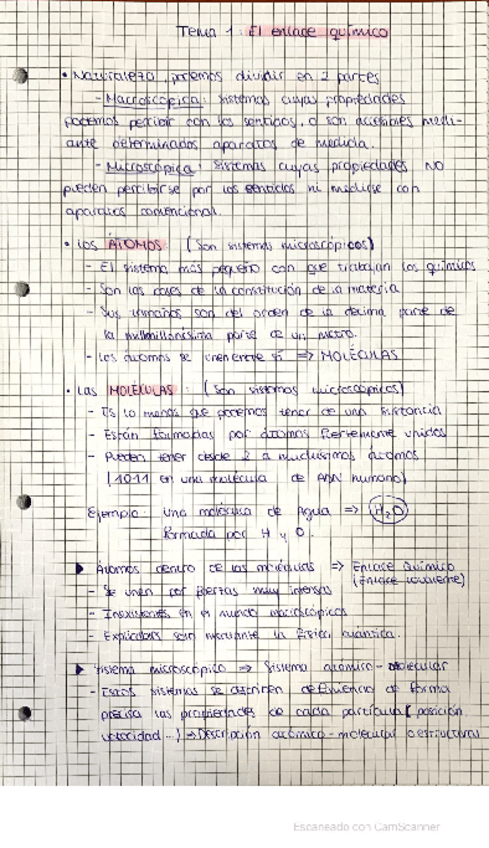 Tema 1: El enlace químico
• Naturaleza, podemos dividir en 2 partes
- Macroscópica: sistemas cuyas propiedades
podemos percibir con los sentidos, o son accesibles medi-
ante determinados aparatos de medida.
- Microscópica: sistemas cuyas propiedades NO
pueden percibirse por los sentidos ni medirse con
aparatos convencional.
• Los ÁTOMOS: (Son sistemas microscópicos)
- El sistema más pequeño con que trabajan los químicos
- Son las bases de la constitución de la materia
- Sus tamaños son del orden de la décima parte de
la milmillonésima parte de un metro.
- Los átomos se unen entre sí => MOLÉCULAS
• Las MOLÉCULAS: (Son sistemas microscópicos)
- Es lo menos que podemos tener de una sustancia
- Están formadas por átomos fuertemente unidos
- Pueden tener desde 2 a muchísimos átomos
(1011 en una molécula de ADN humano)
Ejemplo: una molécula de Agua => H₂O
formada por H y O.
▶ Átomos dentro de las moléculas => Enlace Químico
(Enlace covalente)
- Se unen por fuerzas muy intensas
- Inexistentes en el mundo macroscópicos
- Explicadas son mediante la física cuántica.
▶ Sistema microscópico => Sistema atómico-molecular
- Estos sistemas se describen definiendo de forma
precisa las propiedades de cada partícula (posición,
velocidad...) => Descripción atómico-molecular o estructural
Escaneado con CamScanner